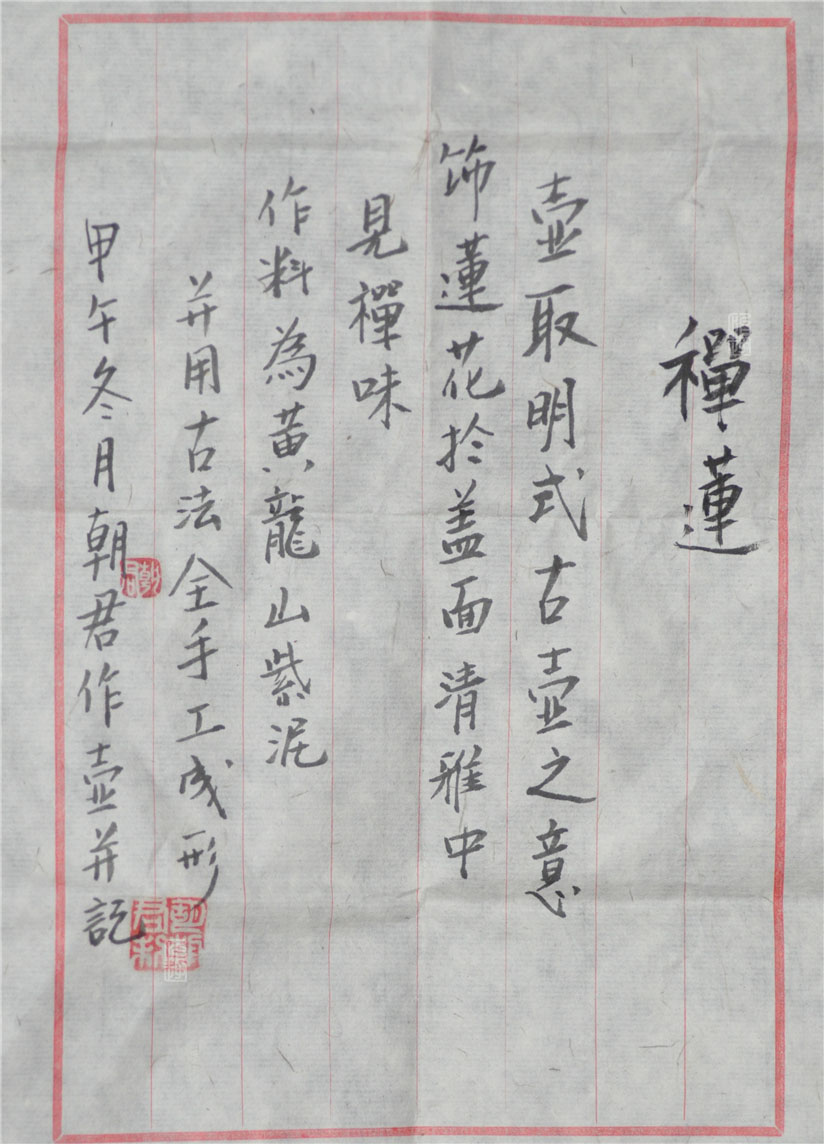 禪蓮
壺取明式古壺之意
飾蓮花於盖面清雅中
見禪味
作料為黃龍山紫泥
并用古法全手工成形
甲午冬月朝君作壺并記